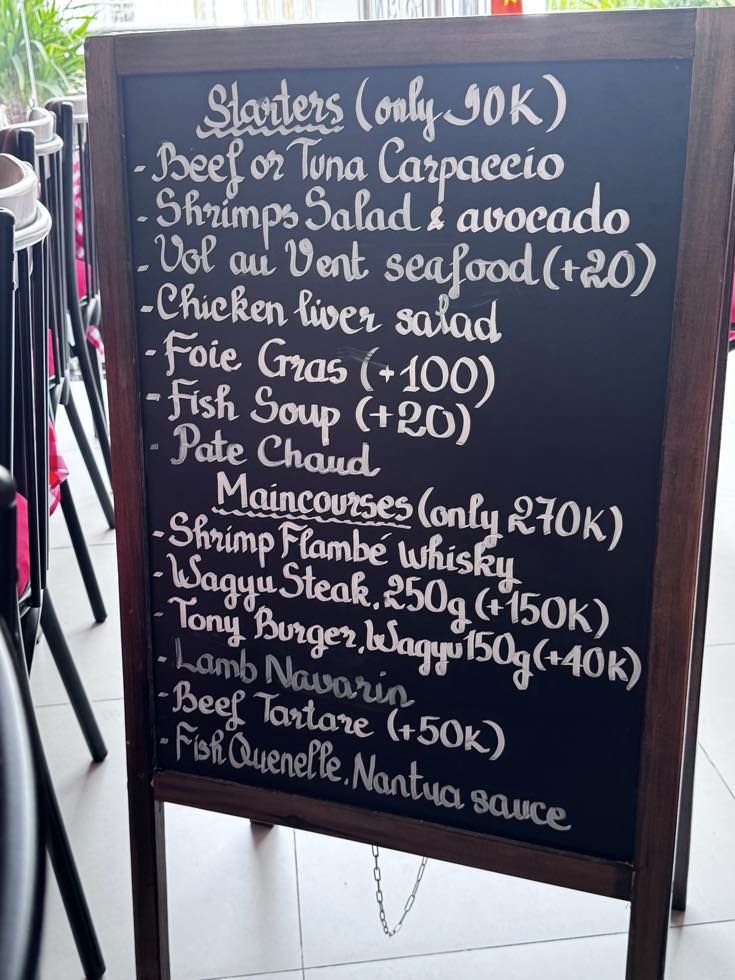 Starters (only 90K)
- Beef or Tuna Carpaccio
- Shrimps Salad & avocado
- Vol au Vent seafood (+20)
- Chicken liver salad
- Foie Gras (+100)
- Fish Soup (+20)
- Pate Chaud
Maincourses (only 270K)
- Shrimp Flambé whisky
- Wagyu Steak, 250g (+150K)
- Tony Burger, Wagyu 150g (+40K)
- Lamb Navarin
- Beef Tartare (+50K)
- Fish Quenelle, Nantua sauce